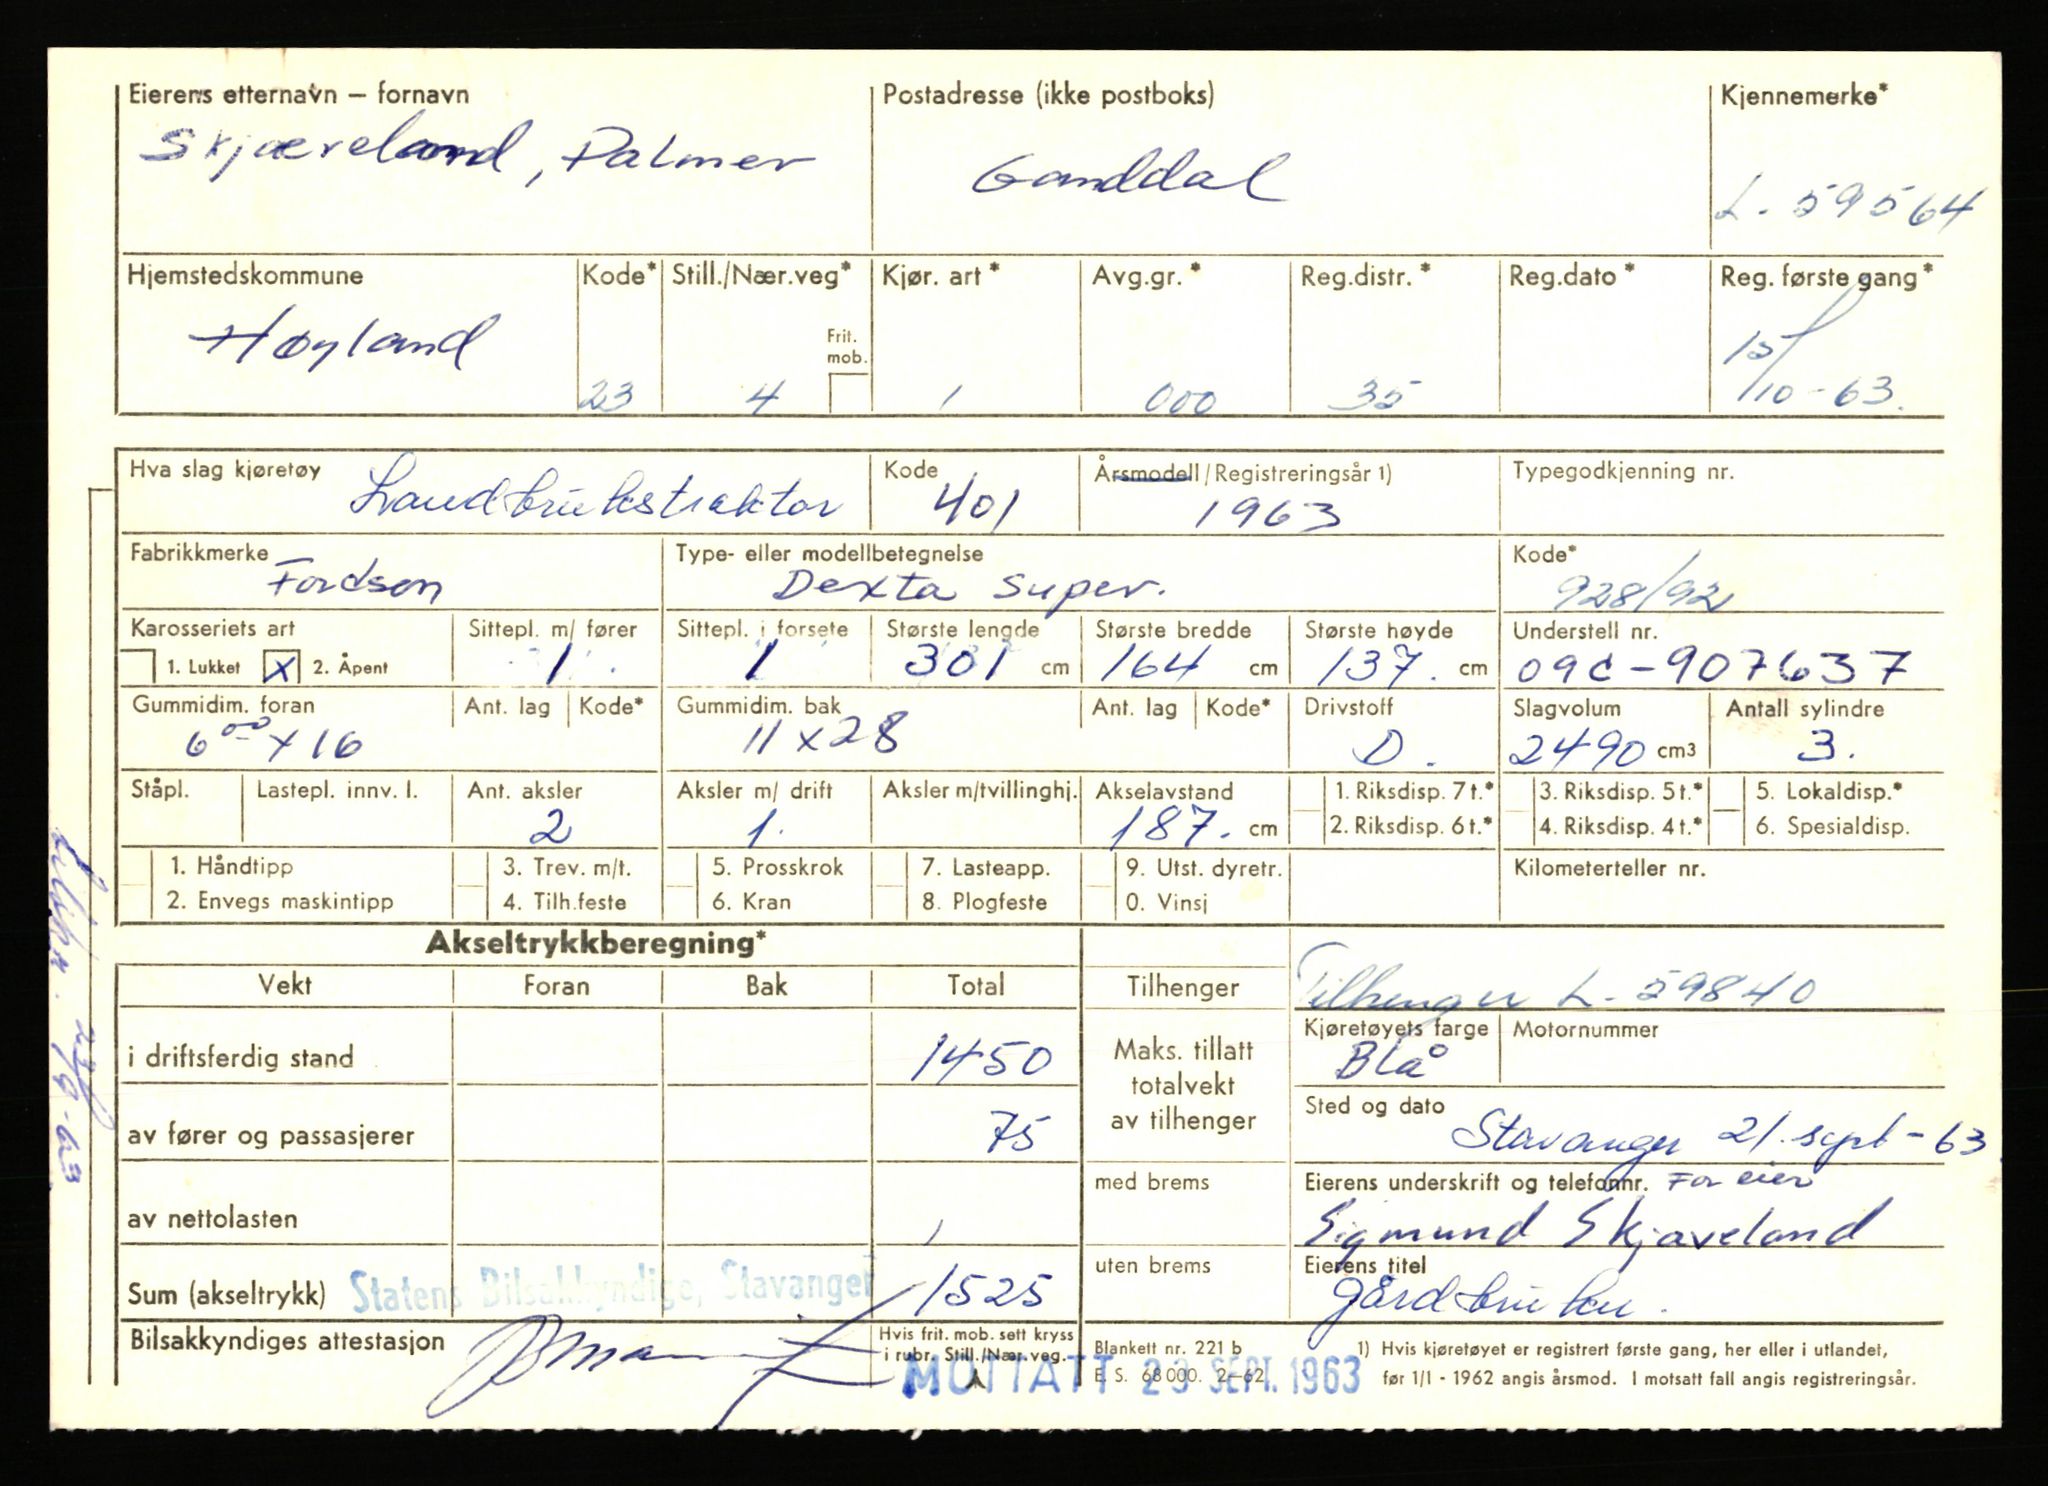 Eierens etternavn – fornavn
Skjæreland, Palmer
Postadresse (ikke postboks)
Ganddal
Kjennemerke*
L. 59564
Hjemstedskommune
Høyland
Kode*
23
Still./Nær.veg*
4
Frit.
mob.
Kjør. art *
1
Avg.gr. *
000
Reg.distr. *
35
Reg.dato *
Reg. første gang*
15/10-63.
Hva slag kjøretøy
Landbrukstraktor
Kode
401
Årsmodell/Registreringsår 1)
1963
Typegodkjenning nr.
Fabrikkmerke
Fordson
Type- eller modellbetegnelse
Dexta Super.
Kode*
928/92
Karosseriets art
1. Lukket X 2. Åpent
Sittepl. m/ fører
1
Sittepl. i forsete
1
Største lengde
301 cm
Største bredde
164 cm
Største høyde
137. cm
Understell nr.
09C-907637
Gummidim. foran
6 00 x 16
Ant. lag
Kode*
Gummidim. bak
11 x 28
Ant. lag
Kode*
Drivstoff
D.
Slagvolum
2490 cm3
Antall sylindre
3.
Ståpl.
Lastepl. innv. l.
Ant. aksler
2
Aksler m/ drift
1.
Aksler m/tvillinghj.
Akselavstand
187. cm
1. Riksdisp. 7 t.*
2. Riksdisp. 6 t.*
3. Riksdisp. 5 t.*
4. Riksdisp. 4 t.*
5. Lokaldisp.*
6. Spesialdisp.
1. Håndtipp
2. Envegs maskintipp
3. Trev. m/t.
4. Tilh.feste
5. Prosskrok
6. Kran
7. Lasteapp.
8. Plogfeste
9. Utst. dyretr.
0. Vinsj
Kilometerteller nr.
Akseltrykkberegning*
Vekt
Foran
Bak
Total
i driftsferdig stand
1450
av fører og passasjerer
75
av nettolasten
Sum (akseltrykk)
1525
Statens Bilsakkyndige, Stavanger
Bilsakkyndiges attestasjon
Hvis frit. mob. sett kryss
i rubr. Still./Nær.veg.
Tilhenger
Tilhenger L. 59840
Maks. tillatt
totalvekt
av tilhenger
med brems
uten brems
Kjøretøyets farge
Blå
Motornummer
Sted og dato
Stavanger 21. sept-63
Eierens underskrift og telefonnr. For eier
Sigmund Skjaveland
Eierens titel
gårdbruker.
Blankett nr. 221 b
E. S. 68 000. 2–62
MOTTATT 23 SEPT. 1963
1) Hvis kjøretøyet er registrert første gang, her eller i utlandet,
før 1/1 - 1962 angis årsmod. I motsatt fall angis registreringsår.